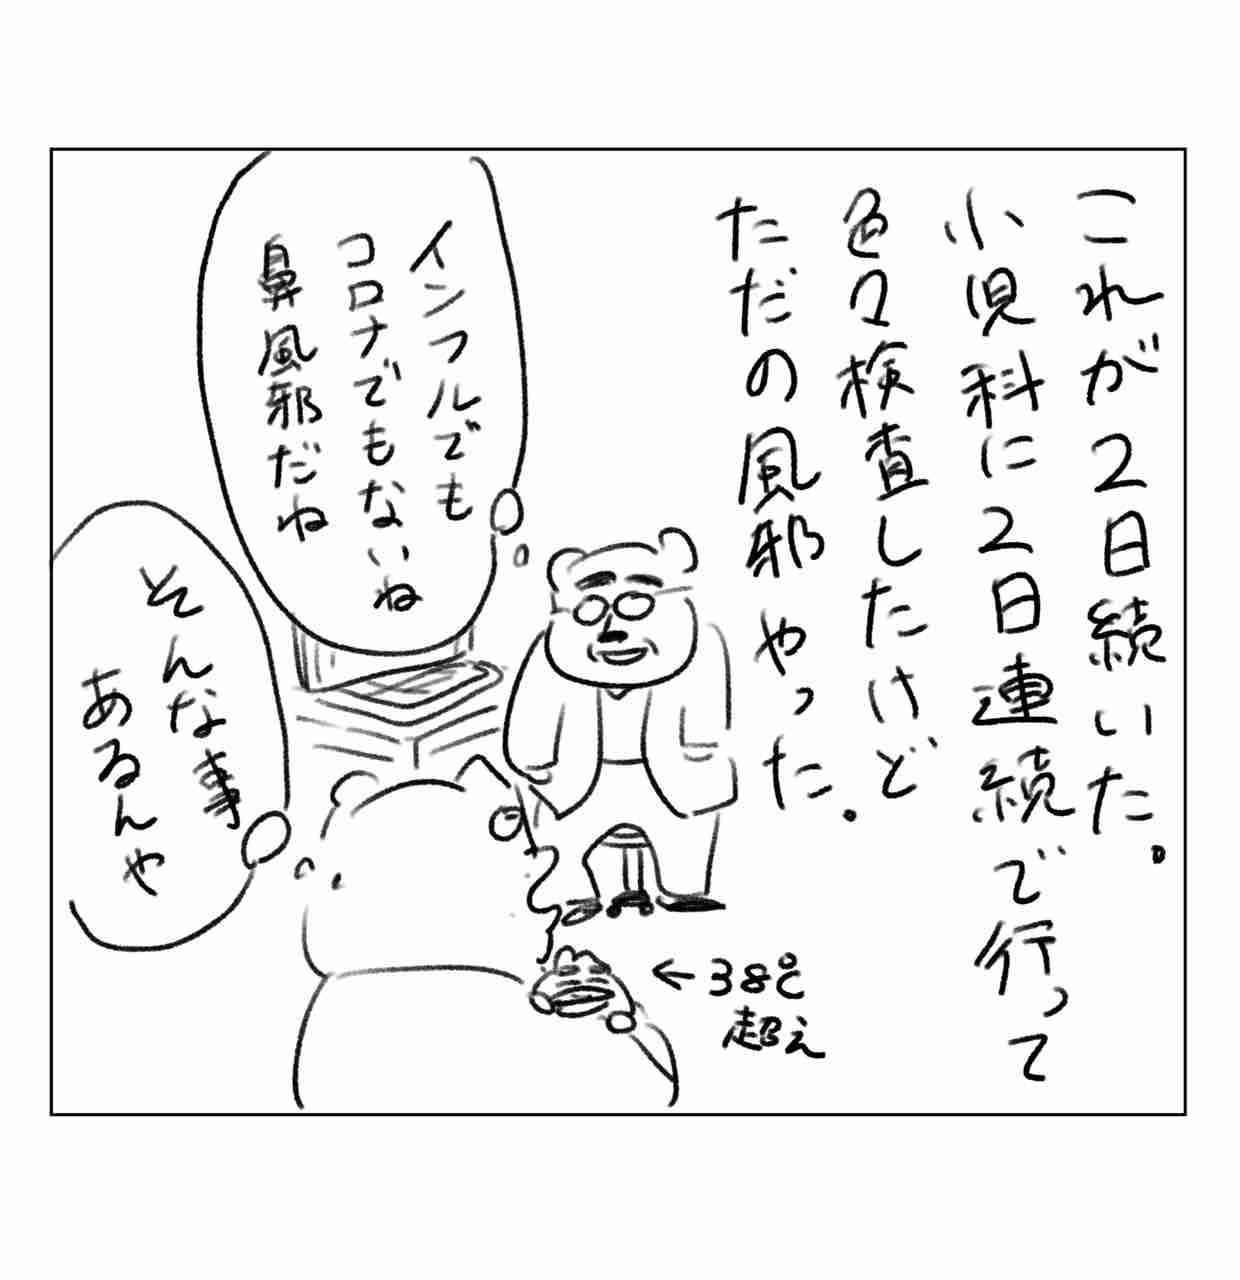 これが2日続いた。
小児科に2日連続で行って
色々検査したけど
ただの風邪やった。
インフルでも
コロナでもないね
鼻風邪だね
そんな事
あるんや
←38℃
超え